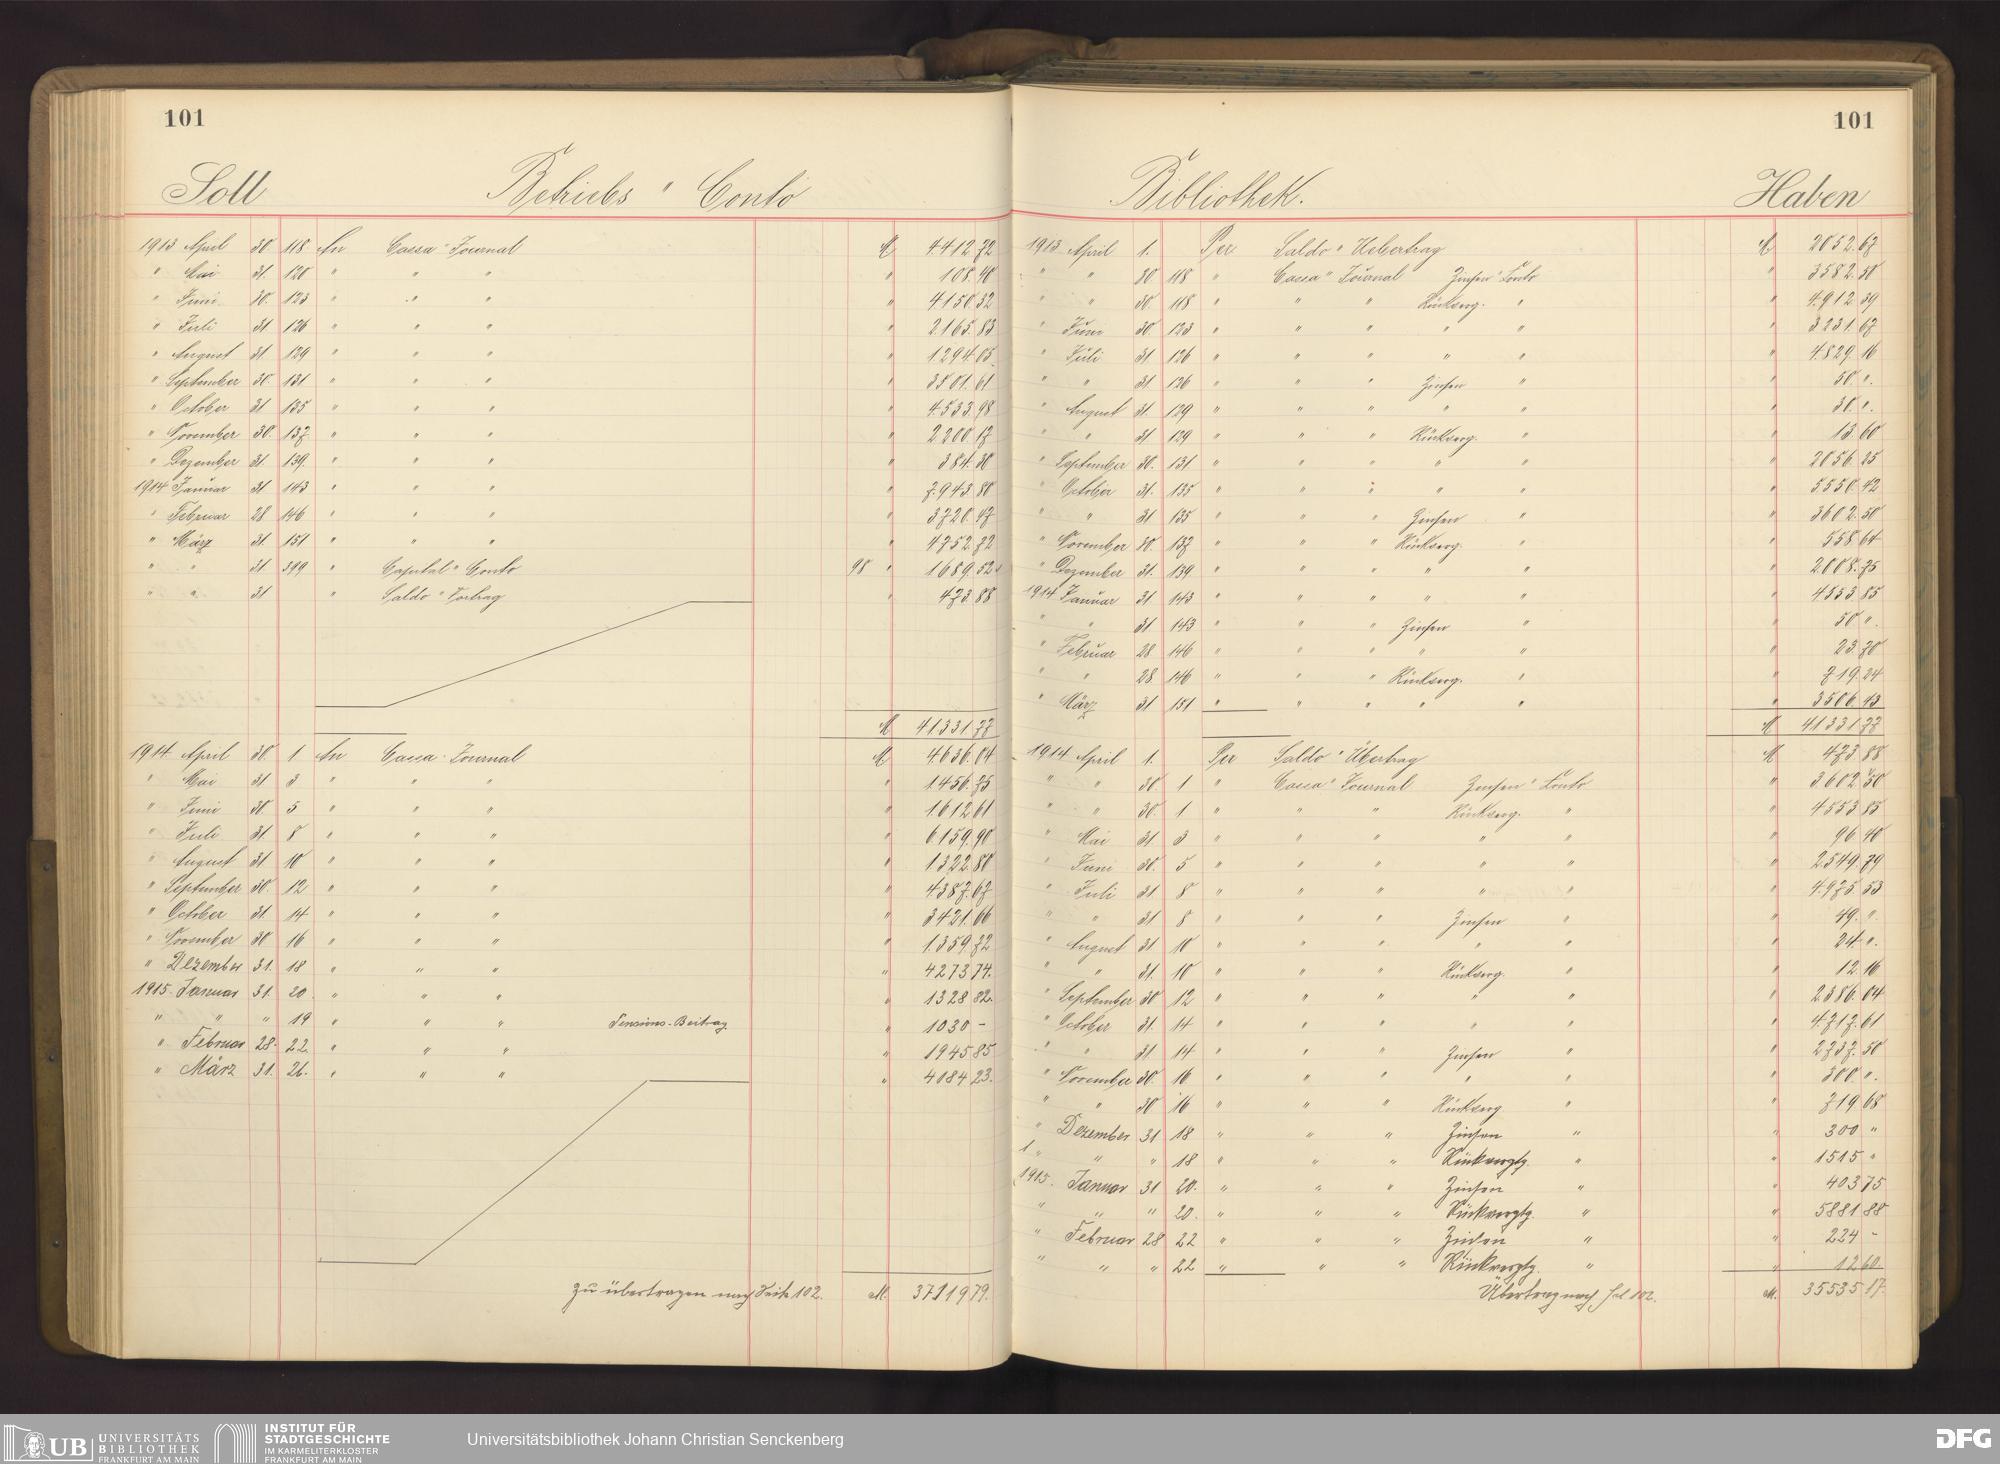 101
Soll Betriebs " Conto
1913 April 30. 118 An Cassa " Journal M 4412.72
" Mai 31. 120 " " " " 108.40
" Juni 30. 123 " " " " 4150.32
" Juli 31 126 " " " " 2165.83
" August 31 129 " " " " 1294.05
" September 30. 131 " " " " 3501.61
" October 31 135 " " " " 4533.98
" November 30. 137 " " " " 2200.17
" Dezember 31. 139. " " " " 384.30
1914 Januar 31 143 " " " " 7943.80
" Februar 28 146 " " " " 3720.47
" März 31. 151 " " " " 4752.72
" " 31 319 " Capital " Conto 98 " 1689.52
" " 31 " Saldo " Vortrag " 473.88
M 41331.77
1914 April 30. 1 An Cassa - Journal M 4636.04
" Mai 31 3 " " " " 1456.75
" Juni 30. 5 " " " " 1612.61
" Juli 31 8 " " " " 6159.90
" August 31 10 " " " " 1322.80
" September 30. 12 " " " " 4387.67
" October 31 14 " " " " 3421.66
" November 30 16 " " " " 1359.72
" Dezember 31. 18 " " " " 4273 74.
1915 Januar 31. 20. " " " " 1328 82.
" " " 19 " " " Pensions-Beitrag " 1030 -
" Februar 28. 22. " " " " 1945 85
" März 31. 26. " " " " 4184 23.
zu übertragen nach Seite 102. M. 37119 79.
101
Bibliothek. Haben
1913 April 1. Per Saldo " Uebertrag M 2052.67
" " 30 118 " Cassa " Journal Zinsen " Conto " 3582.50
" " 30 118 " " " Rückverg. " " 4912.39
" Juni 30. 123 " " " " " " 3231.67
" Juli 31 126 " " " " " " 4829.16
" " 31 126 " " " Zinsen " " 50. ".
" August 31. 129 " " " " " " 30. ".
" " 31 129 " " " Rückverg. " " 13.60
" September 30. 131 " " " " " " 2056.25
" October 31. 135 " " " " " " 5550.42
" " 31 135 " " " Zinsen " " 3602.50
" November 30. 137 " " " Rückverg. " " 558.64
" Dezember 31. 139 " " " " " " 2008.75
1914 Januar 31 143 " " " " " " 4553.85
" " 31 143 " " " Zinsen " " 50 ".
" Februar 28 146 " " " " " " 23.70
" " 28. 146 " " " Rückverg. " " 719.24
" März 31 151 " " " " " " 3506.43
M 41331.77
1914 April 1. Per Saldo " Übertrag M 473.88
" " 30. 1 " Cassa " Journal Zinsen " Conto " 3602.50
" " 30. 1 " " " Rückverg. " " 4553.85
" Mai 31. 3 " " " " " " 96.40
" Juni 30. 5 " " " " " " 2549.79
" Juli 31. 8 " " " " " " 4975.53
" " 31 8 " " " Zinsen " " 49. ".
" August 31 10 " " " " " " 24 ".
" " 31. 10 " " " Rückverg. " " 12.16
" September 30 12 " " " " " " 2386.04
" October 31. 14 " " " " " " 4717.61
" " 31. 14 " " " Zinsen " " 2737.50
" November 30. 16 " " " " " " 300 ".
" " 30 16 " " " Rückverg " " 719.68
" Dezember 31 18 " " " Zinsen " " 300 "
" " " 18 " " " Rückvergtg. " " 1515 "
1915. Januar 31 20. " " " Zinsen " " 403 75
" " " 20. " " " Rückvergtg. " " 5881 88
" Februar 28 22 " " " Zinsen " " 224 -
" " " 22 " " " Rückvergtg. " " 12 60
Übertrag nach Fol 102. M. 35535 17.
UB UNIVERSITÄTS
BIBLIOTHEK
FRANKFURT AM MAIN
INSTITUT FÜR
STADTGESCHICHTE
IM KARMELITERKLOSTER
FRANKFURT AM MAIN
Universitätsbibliothek Johann Christian Senckenberg
DFG